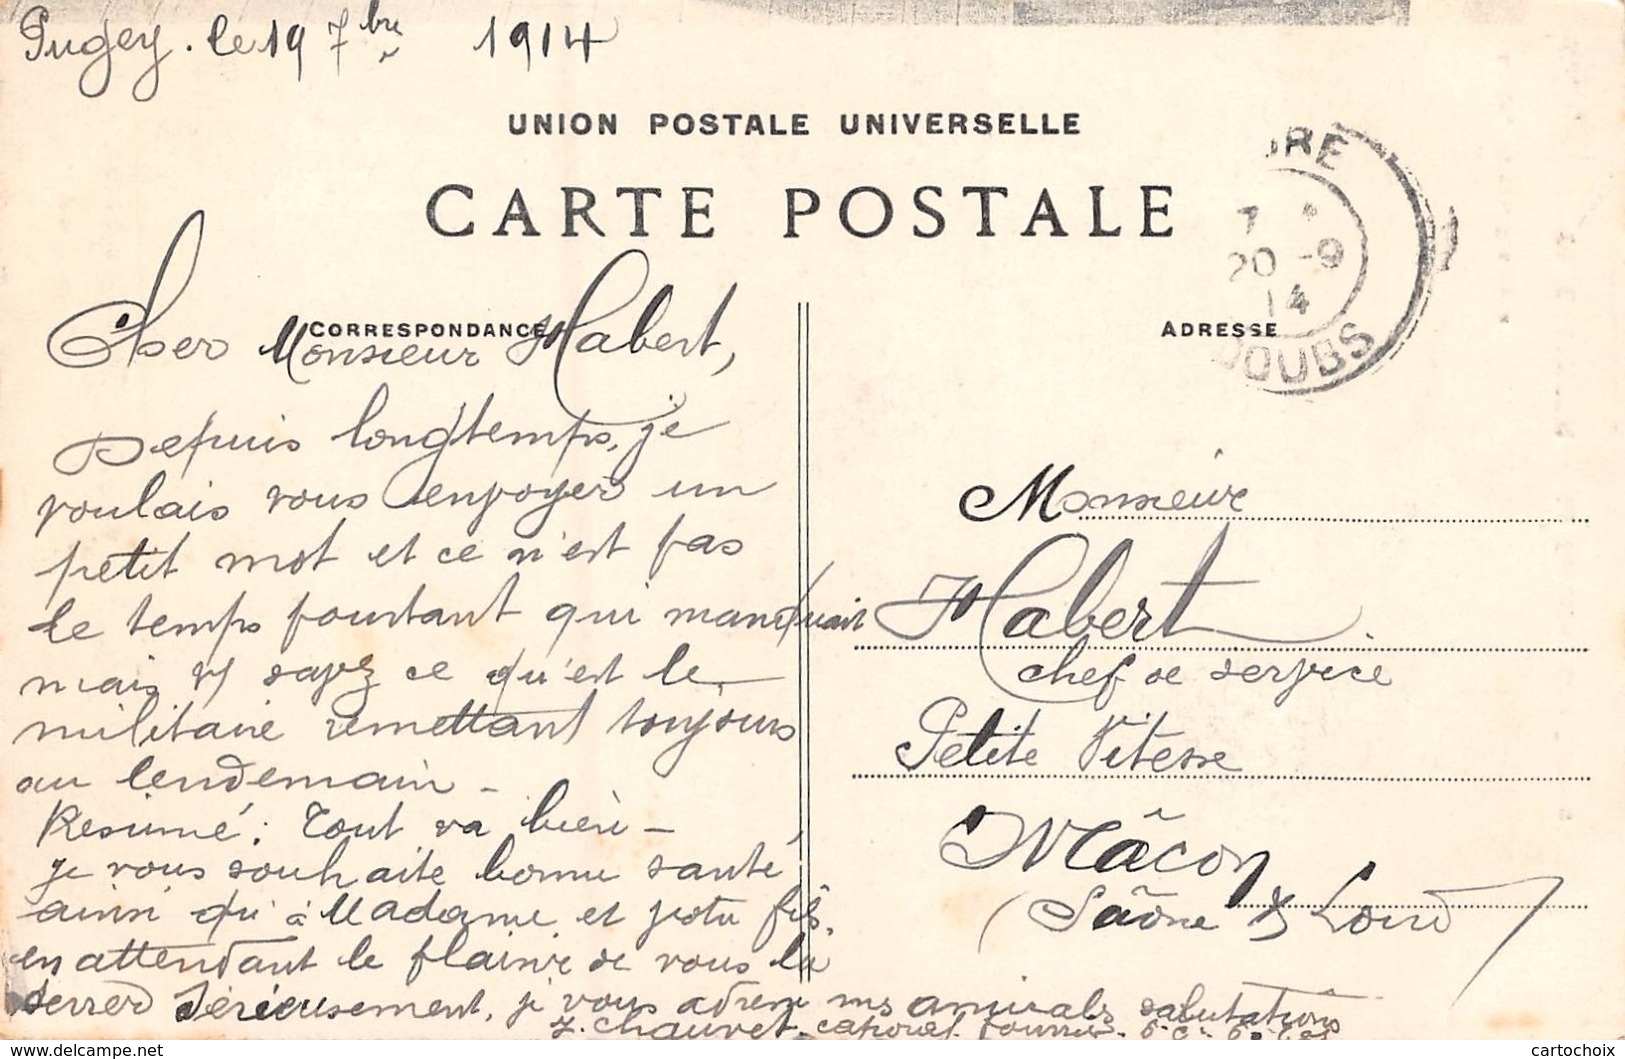 Pugey. le 19 7bre 1914
UNION POSTALE UNIVERSELLE
CARTE POSTALE
CORRESPONDANCE
Cher Monsieur Habert,
Depuis longtemps, je
voulais vous envoyer un
petit mot et ce n'est pas
le temps pourtant qui manquait
mais vs savez ce qu'est le
militaire remettant toujours
au lendemain -
Résumé: Tout va bien -
je vous souhaite bonne santé,
ainsi qu'à Madame et votre fils,
en attendant le plaisir de vous la
serrer sérieusement, je vous adresse mes amicals salutations
J. Chauvet. caporal fourrier.
ADRESSE
7 *
20 -9
14
DOUBS
Monsieur
Habert
chef de service
Petite Vitesse
Mâcon
(Saône & Loire)
cartochoix